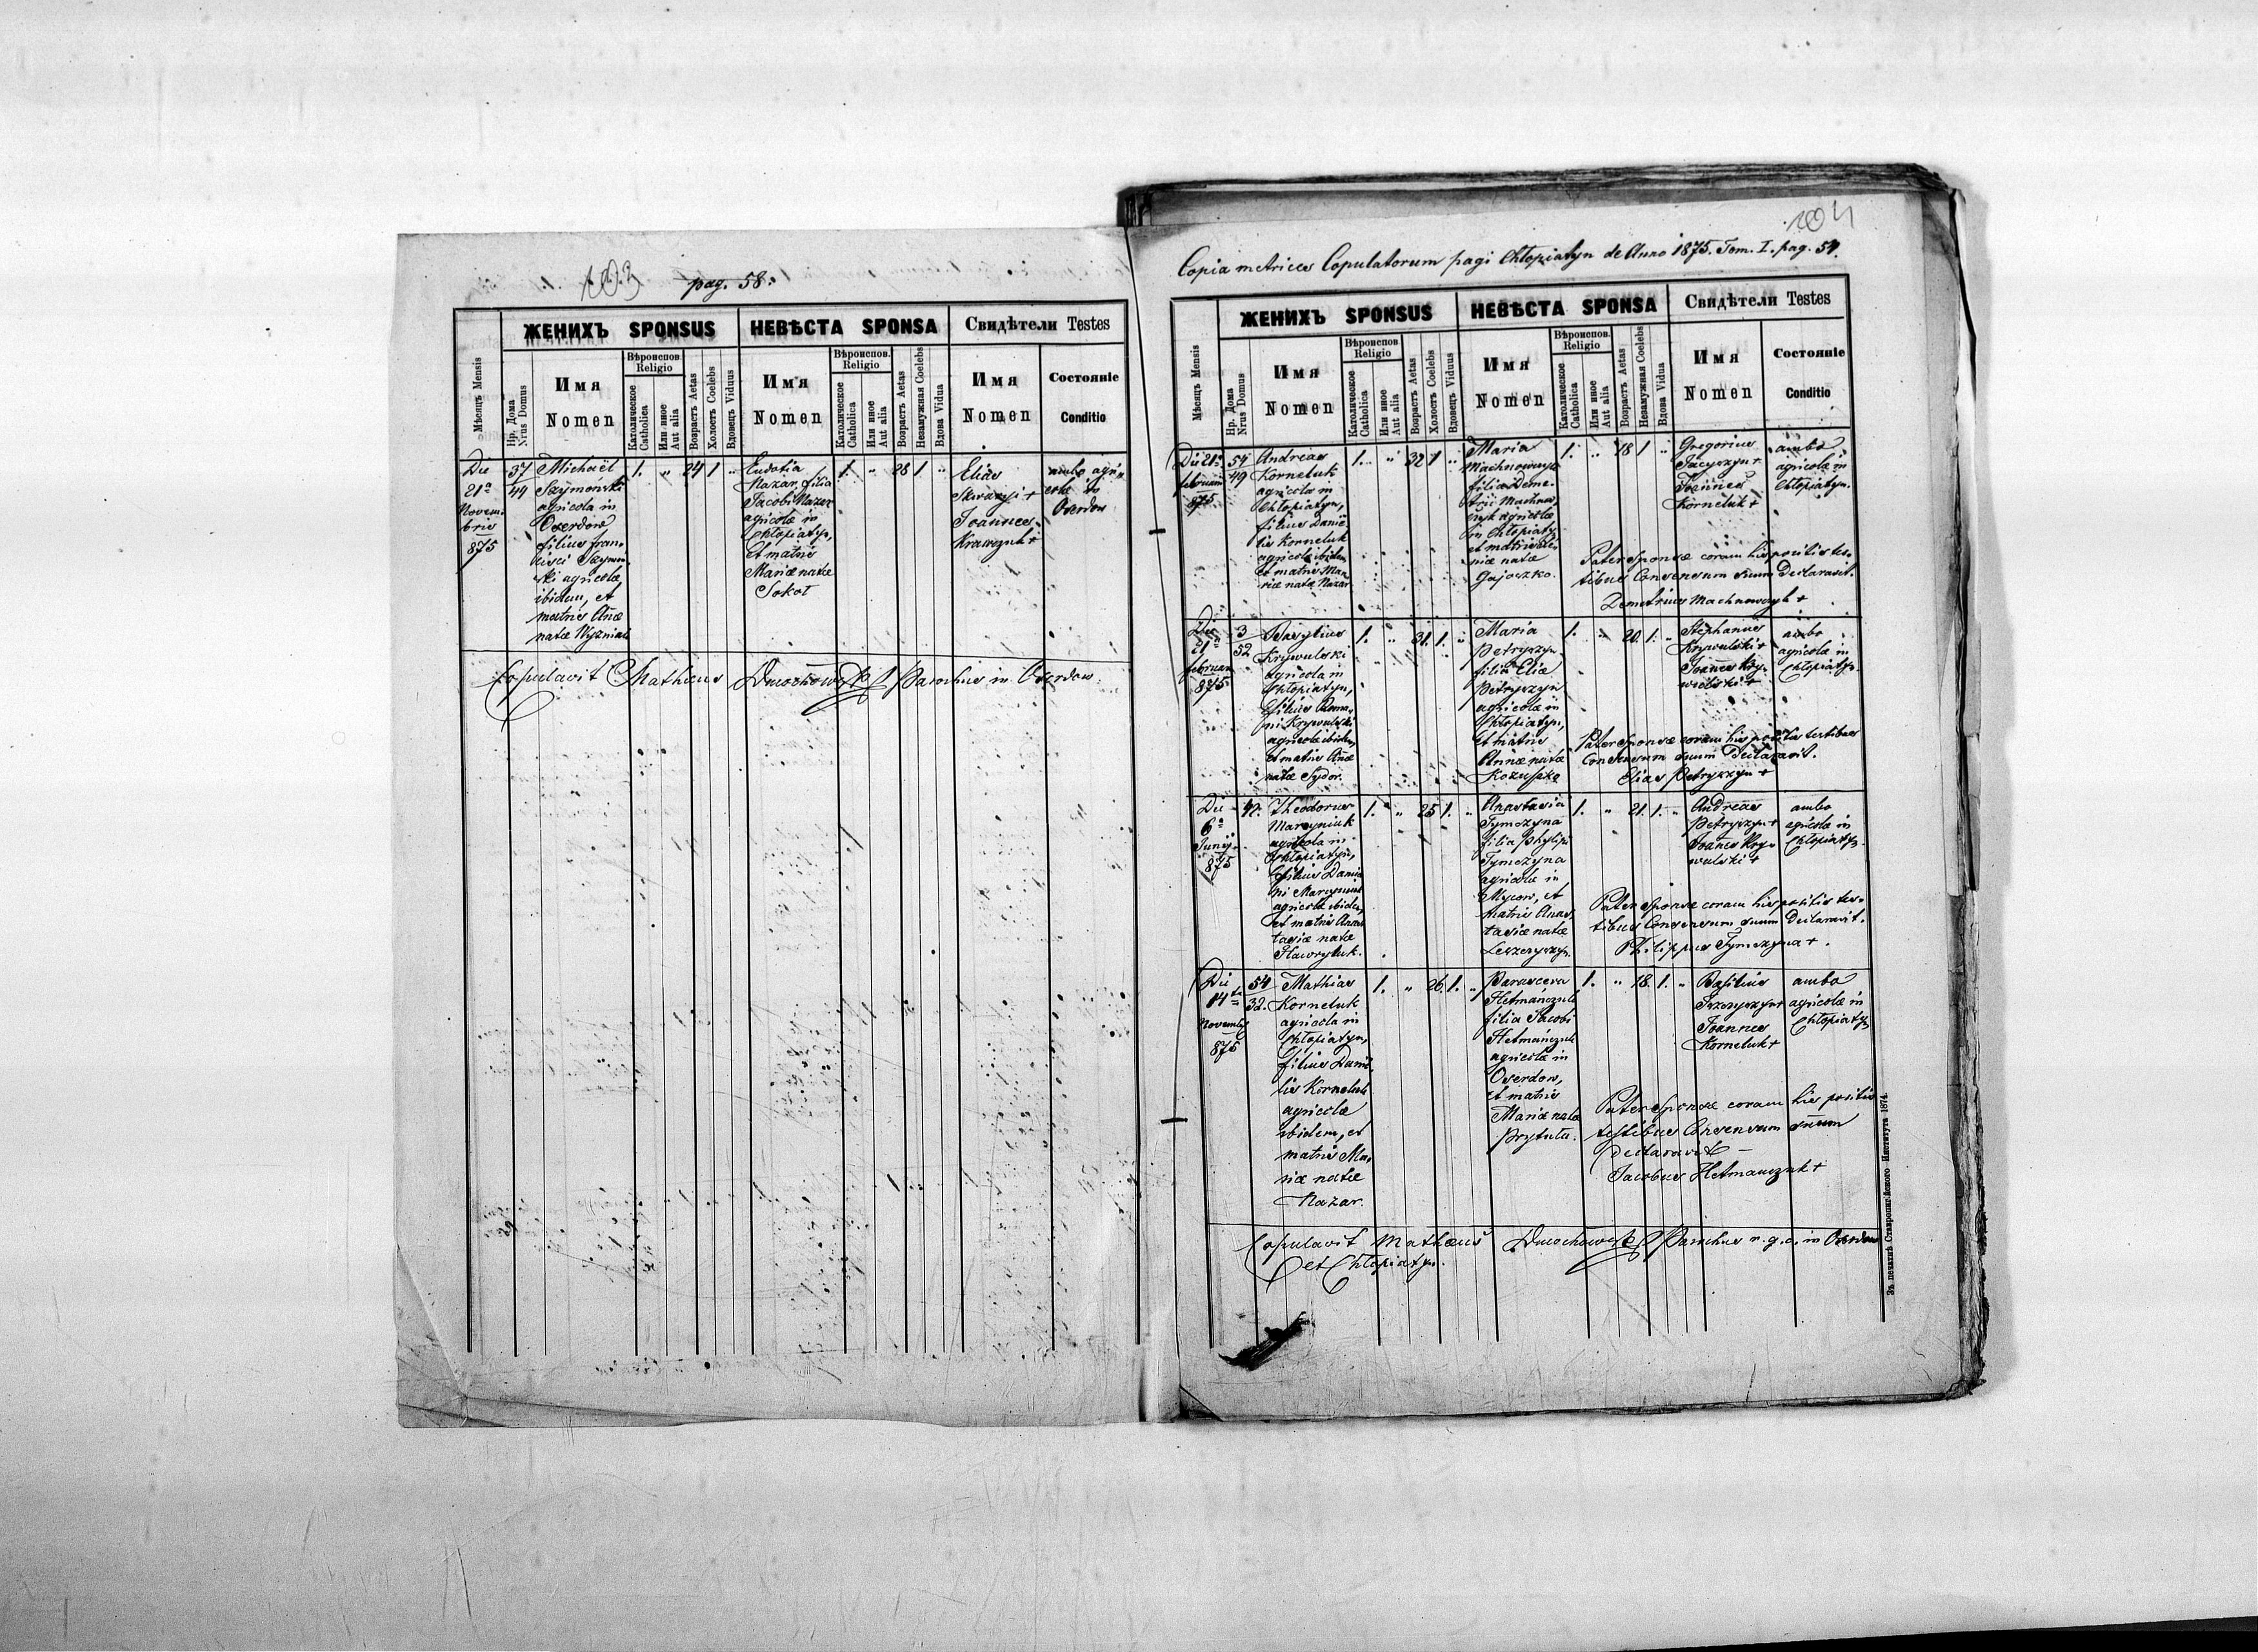 103
pag. 58.
ЖЕНИХЪ SPONSUS
НЕВѢСТА SPONSA
Свидѣтели Testes
Мѣсяцъ Mensis
Нр. Дома
Nrus Domus
Имя
Nomen
Вѣроиспов.
Religio
Католическое
Catholica
Или иное
Aut alia
Возрастъ Aetas
Холостъ Coelebs
Вдовецъ Viduus
Имя
Nomen
Вѣроиспов.
Religio
Католическое
Catholica
Или иное
Aut alia
Возрастъ Aetas
Незамужная Coelebs
Вдова Vidua
Имя
Nomen
Состояніе
Conditio
Die
21a
Novem.
bris
875
37
44
Michaël
Szymoński
agricola in
Oserdow,
filius fran=
cisci Szymoń
ski agricolæ
ibidem, et
matris Añæ
natæ Wyzniak
1. " 24 1 "
Eudotia
Nazar, filia
Jacobi Nazar
agricolæ in
Chłopiatyn,
et matris
Mariæ natæ
Sokoł
1. " 28 1 "
Elias
Skwarzyi +
Joannes
Krawczuk +
ambo agri=
colæ in
Oserdow
Copulavit Matheus Dmochowski Parochus in Oserdow.
104
Copia metrices Copulatorum pagi Chłopiatyn de Anno 1875. Tom. I. pag. 54.
ЖЕНИХЪ SPONSUS
НЕВѢСТА SPONSA
Свидѣтели Testes
Мѣсяцъ Mensis
Нр. Дома
Nrus Domus
Имя
Nomen
Вѣроиспов.
Religio
Католическое
Catholica
Или иное
Aut alia
Возрастъ Aetas
Холостъ Coelebs
Вдовецъ Viduus
Имя
Nomen
Вѣроиспов.
Religio
Католическое
Catholica
Или иное
Aut alia
Возрастъ Aetas
Незамужная Coelebs
Вдова Vidua
Имя
Nomen
Состояніе
Conditio
Die 21a
februarii
875
54
49
Andreas
Korneluk
agricola in
Chłopiatyn,
filius Danie
lis Korneluk
agricolæ ibidem
et matris Ma=
riæ natæ Nazar
1. " 32 1 "
Maria
filia Deme=
trii Machnow
czyk agricolæ
in Chłopiatyn
natæ
Gajoszko.
1. " 18 1 "
Gregorius
Joannes
Korneluk +
ambo
agricolæ in
Chłopiatyn.
Pater Sponsæ coram his positis tes=
tibus Consensum suum Declaravit.
Demetrius Machnowczyk +
Die
21a
februarii
875
3
52
Basylius
Krywulski
agricola in
Chłopiatyn,
filius Roma=
ni Krywulski
agricolæ ibidem,
et matris Añæ
natæ Sydor.
1. " 31. 1. "
Maria
Petryszyn
filia Eliæ
Petryszyn
agricolæ in
Chłopiatyn,
et matris
Annæ natæ
Kozuszko
1. " 20. 1. "
Stephanus
Krywulski +
Joañes Kry=
wulski +
ambo
agricolæ in
Chłopiatyn.
Pater Sponsæ coram his positis testibus
Consensum suum Declaravit.
Elias Petryszyn +
Die
6a
Junij
875
42.
Theodorus
Marcyniuk
agricola in
Chłopiatyn,
filius Damia
ni Marcyniuk
agricolæ ibidem,
et matris Anas
tasiæ natæ
Hawryluk.
1. " 25 1. "
Anastasia
Tymczyna
filia Phylipi
Tymczyna
agricolæ in
Mycow, et
matris Anas
tasiæ natæ
Leszczyszyn.
1. " 21. 1. "
Andreas
Petryszyn +
Joañes Kry=
wulski +
ambo
agricolæ in
Chłopiatyn.
Pater Sponsæ coram his positis tes=
tibus Consensum suum Declaravit.
Philippus Tymczyna +.
Die
14ta
Novembris
875
54
32.
Mathias
Korneluk
agricola in
Chłopiatyn,
filius Danie
lis Korneluk
agricolæ
ibidem, et
matris Ma=
riæ natæ
Nazar.
1. " 26. 1. "
Parasceva
Hetmańczuk
filia Jacobi
Hetmańczuk
agricolæ in
Oserdow,
et matris
Mariæ natæ
Prytuła.
1. " 18. 1. "
Basilius
Joannes
Korneluk +
ambo
agricolæ in
Chłopiatyn
Pater Sponsæ coram his positis
testibus Consensum suum
Declaravit —
Jacobus Hetmanczuk +
Copulavit Matheus Dmochowski Parochus r. g. c. in Oserdow
et Chłopiatyn.
Зъ печатнѣ Ставропигійского Института 1874.